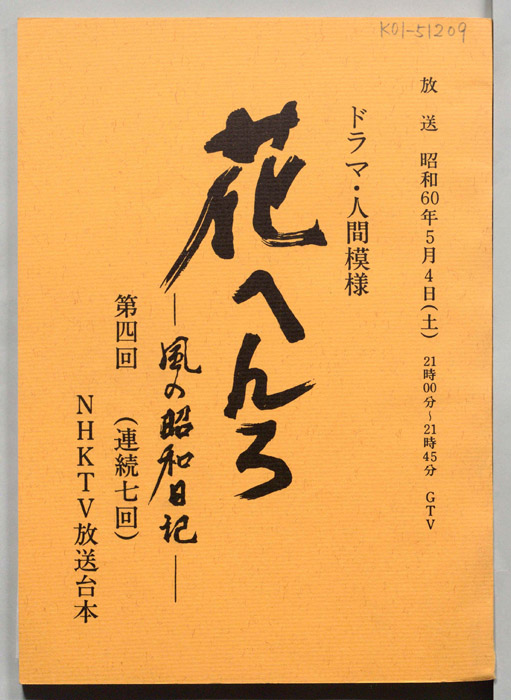 K01-51209
放送 昭和60年5月4日(土) 21時00分~21時45分 GTV
ドラマ・人間模様
花へんろ
―風の昭和日記―
第四回 (連続七回)
NHKTV放送台本